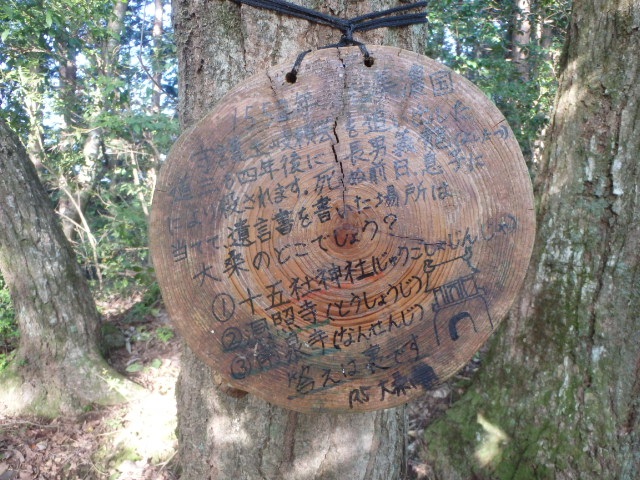 美濃国
守護土岐頼芸を追
道三も四年後に長男義龍
により殺されます。死ぬ前日、息子に
当てて遺言書を書いた場所は、
大桑のどこでしょう?
①十五社神社(じゅうごしゃじんじゃ)
②洞照寺(とうしょうじ)
③南泉寺(なんせんじ)
答えは裏です
R5 大桑